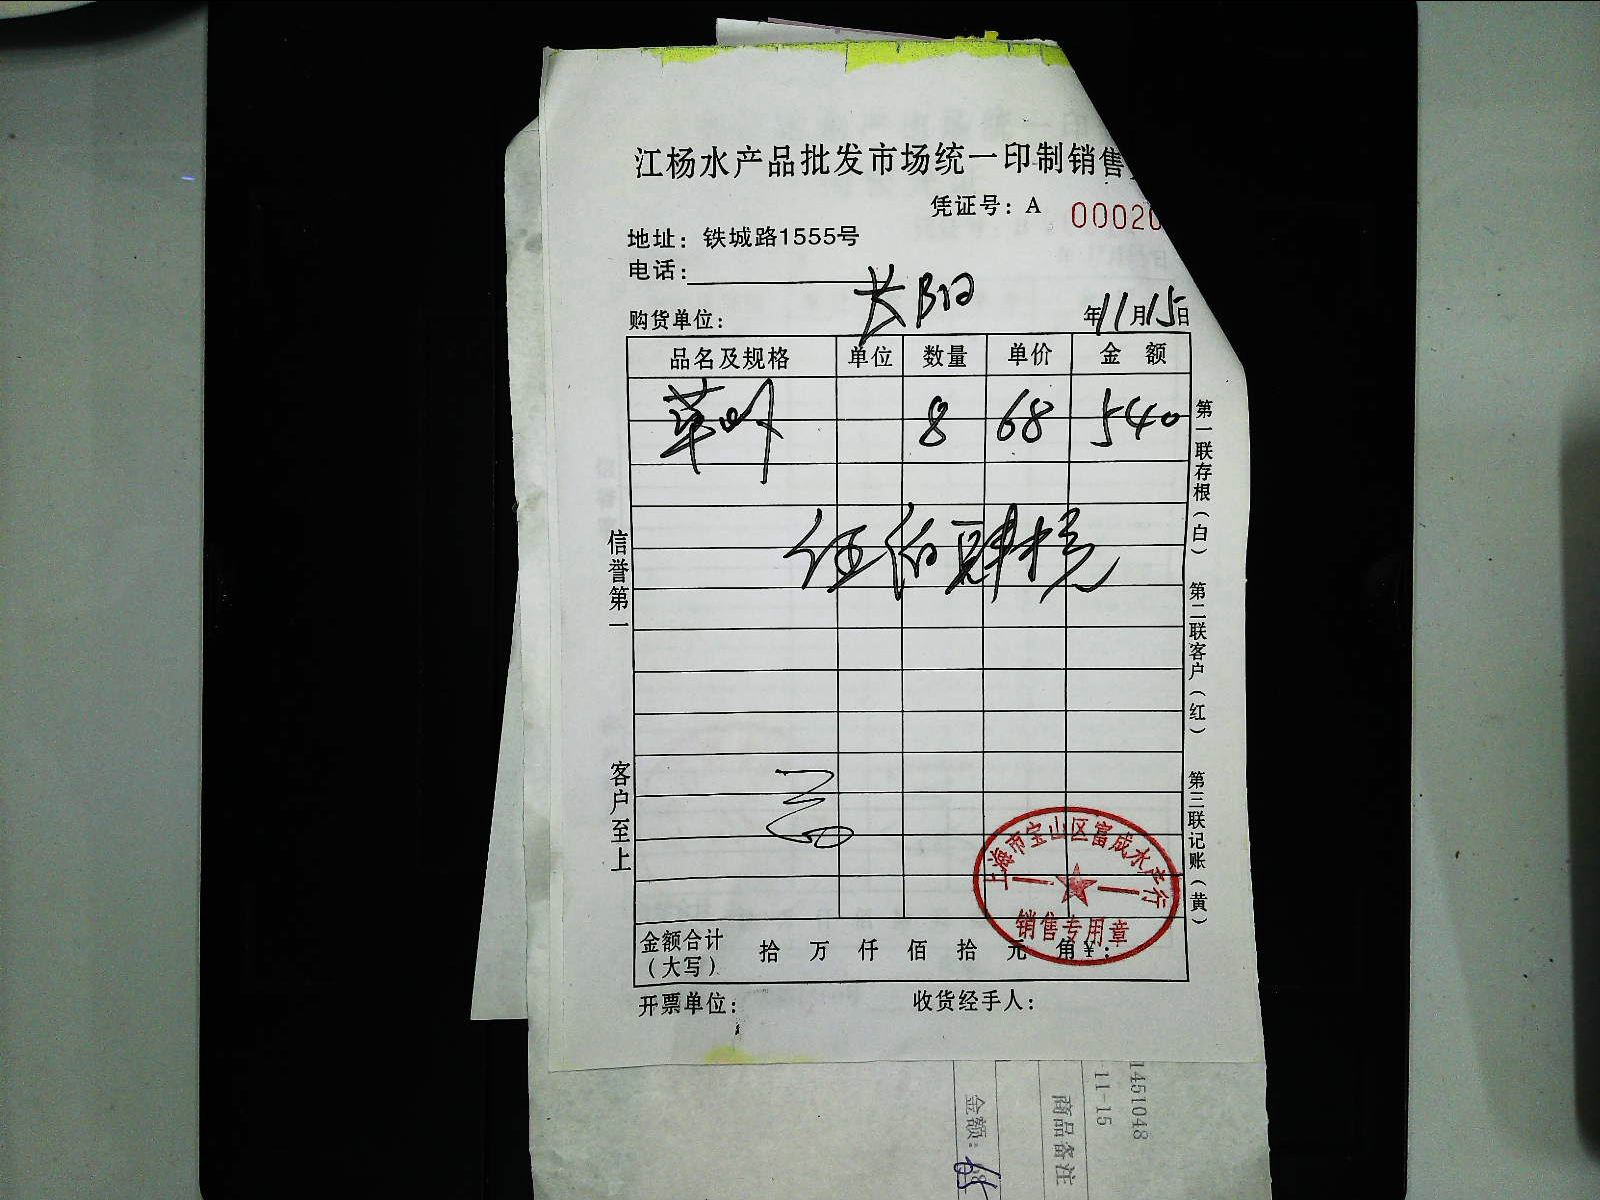 江杨水产品批发市场统一印制销售
凭证号：A 00020
地址：铁城路1555号
电话：
长阳
购货单位：
年11月15日
品名及规格 单位 数量 单价 金额
草 8 68 540
伍佰肆拾元
信誉第一
客户至上
第一联存根（白）
第二联客户（红）
第三联记账（黄）
上海市宝山区富成水产行
销售专用章
金额合计（大写） 拾 万 仟 佰 拾 元 角 ¥：
开票单位： 收货经手人：
1451048
11-15
商品备注
金额：